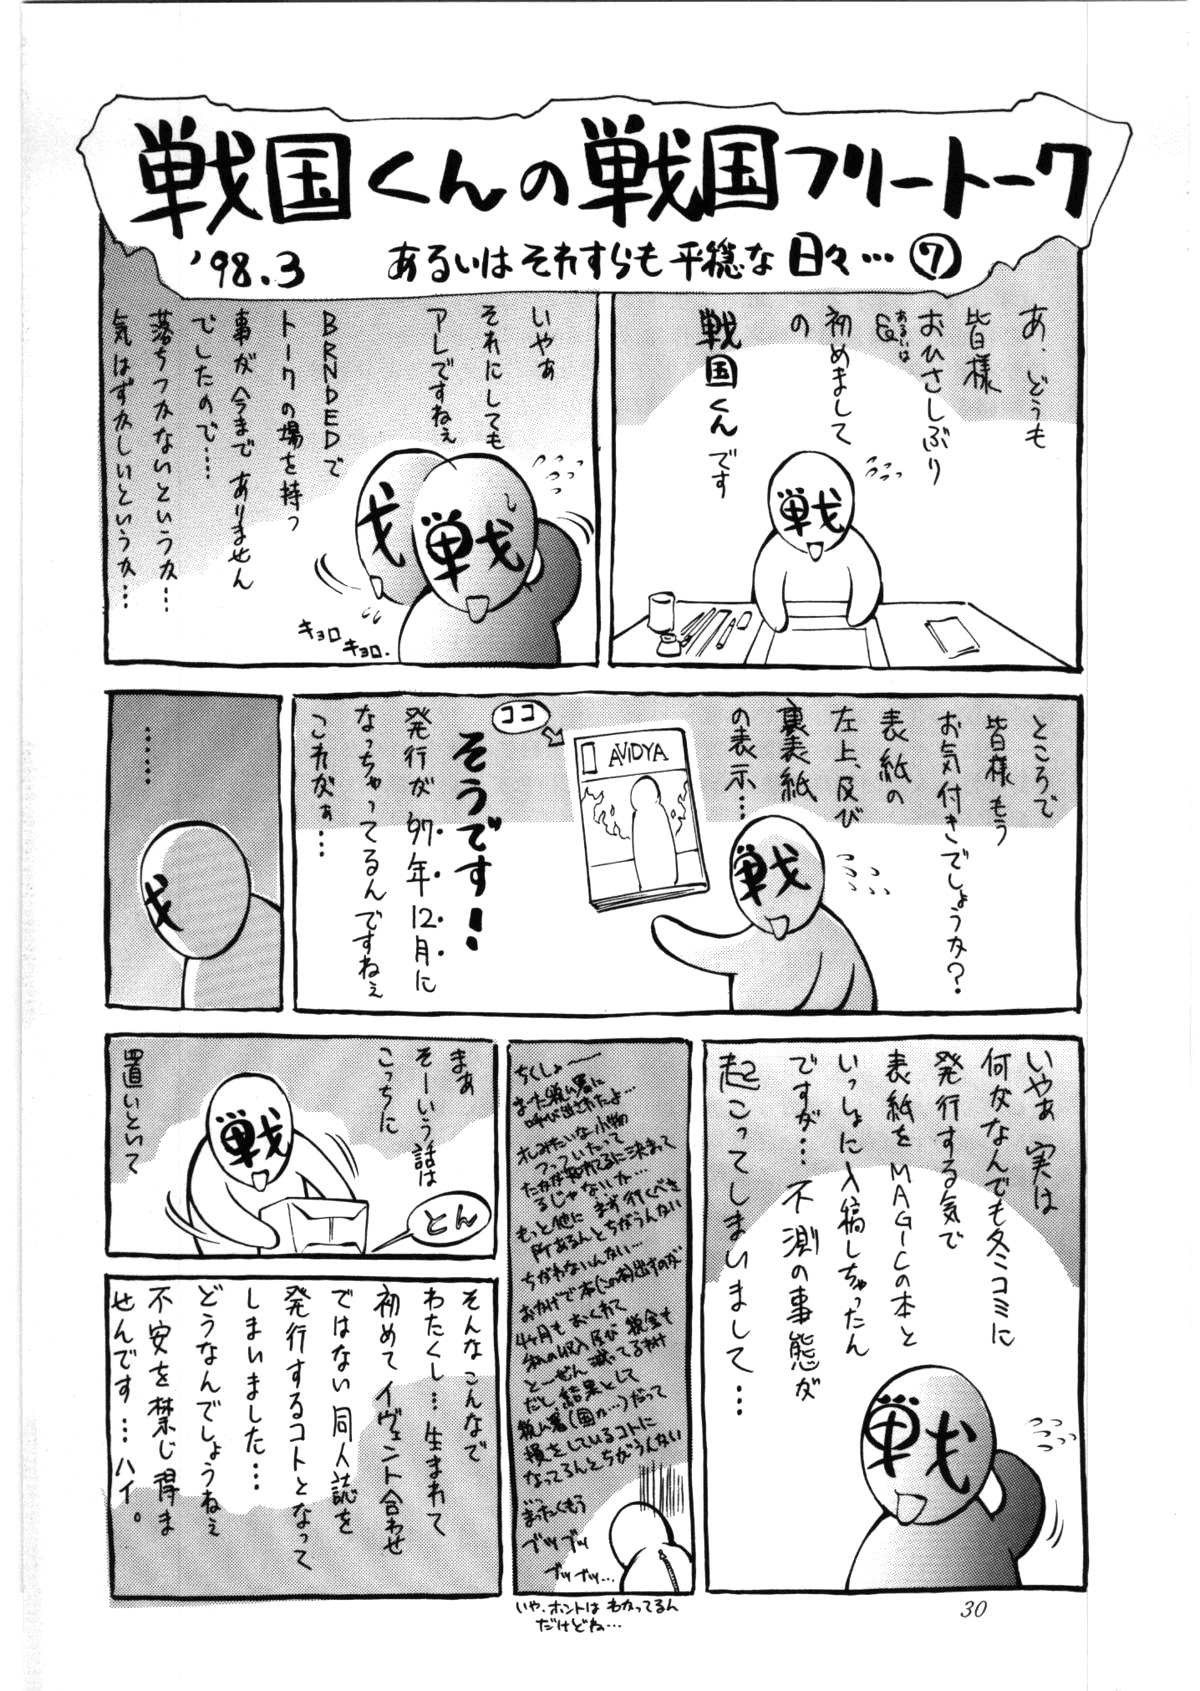 戦国くんの戦国フリートーク
'98.3 あるいはそれすらも平穏な日々…⑦
あ、どうも
皆様
おひさしぶり
あるいは
初めまして
の
戦国くんです
戦
いやぁ
それにしても
アレですねぇ
BRNDEDで
トークの場を持つ
事が今までありません
でしたので……
落ちつかないというか…
気はずかしいというか…
戈
戦
キョロ
キョロ.
ところで
皆様もう
お気付きでしょうか?
表紙の
左上、及び
裏表紙
の表示…
ココ
AVIDYA
戦
そうです!
発行が'97年12月に
なっちゃってるんですねぇ
これがぁ…
……
戈
いやぁ実は
何がなんでも冬コミに
発行する気で
表紙をMAGICの本と
いっしょに入稿しちゃったん
ですが…不測の事態が
起こってしまいまして…
戦
ちくしょーー
また税ム署に
呼び出されたよ…
オレみたいな小物
つっついたって
たかが知れてるに決まって
るじゃないか…
もっと他にまず行くべき
所あるんとちがうんない
ちがわないんない…
おかげで本(この本)出すのが
4ヶ月もおくれて
私の収入及び税金も
とーぜん減ってるわけ
だし結果として
税ム署(国か…)だって
損をしているコトに
なってるんとちがうんない
まったくもう
ブツブツ
ブツブツ…
いや、ホントはわかってるん
だけどね…
まあ
そーいう話は
こっちに
置いといて
戦
とん
そんなこんなで
わたくし…生まれて
初めてイヴェント合わせ
ではない同人誌を
発行するコトとなって
しまいました…
どうなんでしょうねぇ
不安を禁じ得ま
せんです…ハイ。
30